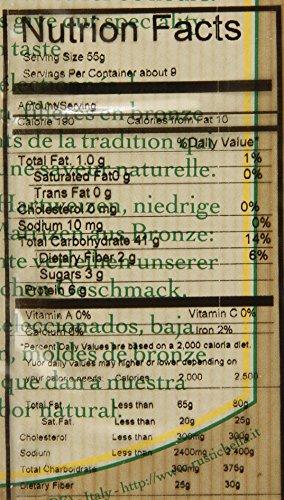 s give our speciality
Nutrition Facts
o taste.
Serving Size 55g
Servings Per Container about 9
Amount/Serving
en bronze
Calorie 190 Calories from Fat 10
ts de la tradition
%Daily Value*
Total Fat. 1.0 g 1%
naturelle.
Saturated Fat 0 g 0%
Trans Fat 0 g
Hartweizen, niedrige
Cholesterol 0 mg 0%
Sodium 10 mg 0%
aus Bronze:
Total Carbohydrate 41 g 14%
unserer
Dietary Fiber 2 g 6%
Sugars 3 g
schmack.
Protein 6 g
Vitamin A 0% Vitamin C 0%
seleccionados, baja
Calcium 0% Iron 2%
*Percent Daily Values are based on a 2,000 calorie diet.
n, moldes de bronze
Yuor daily values may higher or lower depending on
your calorie needs Calories 2,000 2,500
que nuestra
bor natural.
Total Fat Less than 65g 80g
Sat. Fat. Less than 20g 25g
Cholesterol Less than 300mg 300g
Sodium Less than 2400mg 2400g
Total Charboidrate 300mg 375g
Dietary Fiber 25g 30g
Italy - http://www.rustichella.it